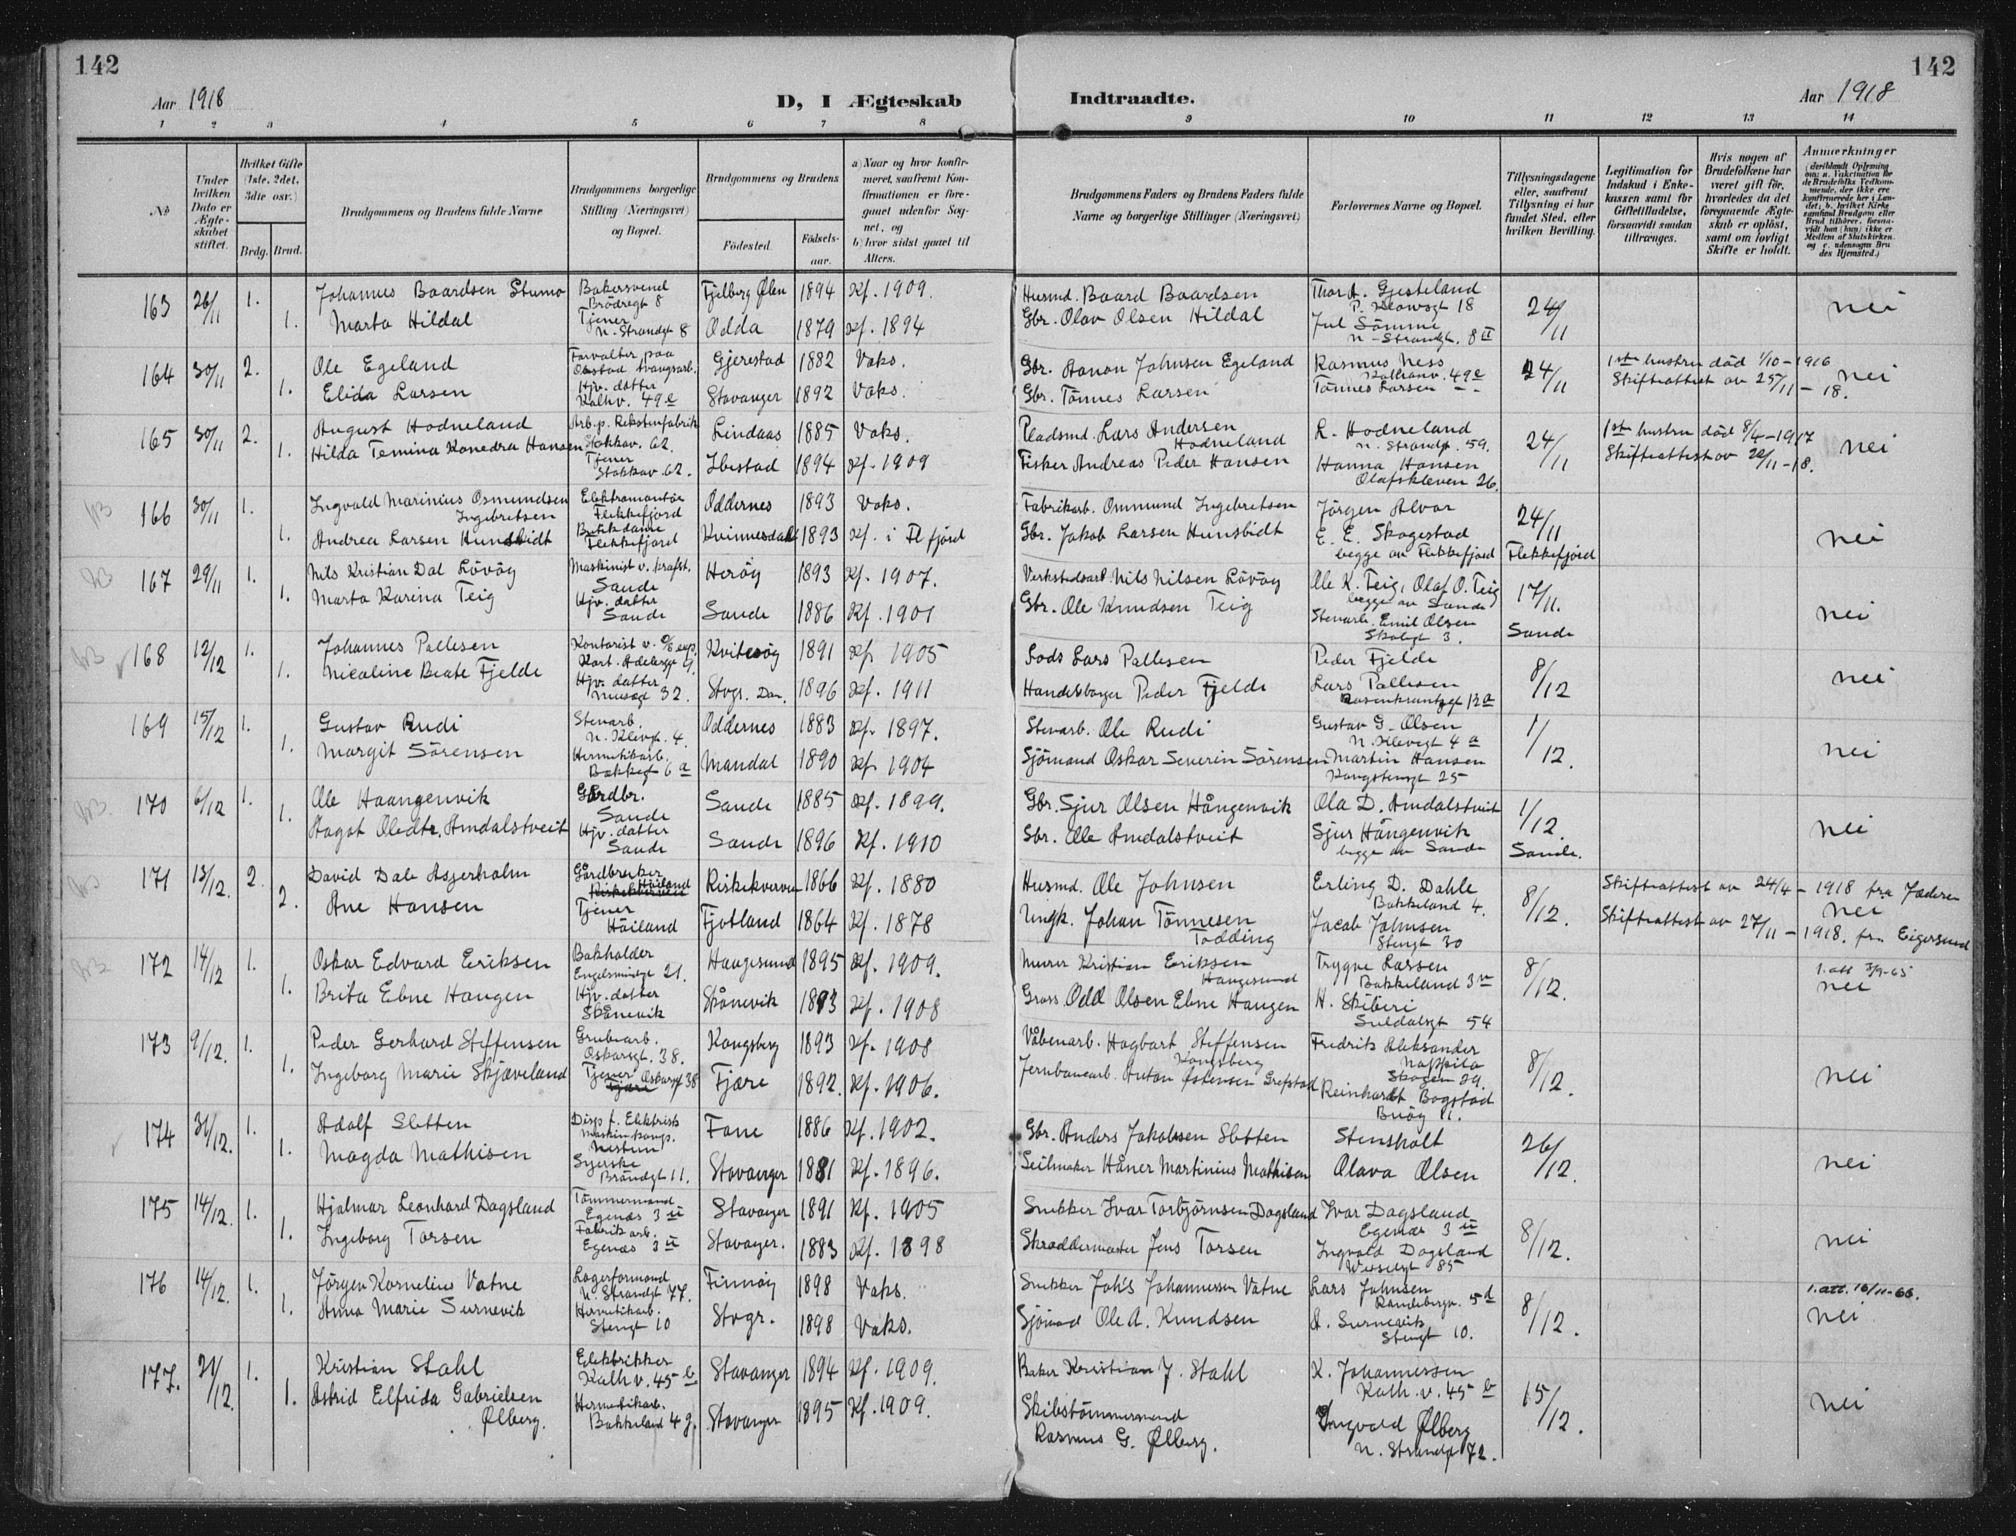 142
142
Aar 1918
D, I Ægteskab
Indtraadte.
Aar 1918
1 2 3 4 5 6 7 8 9 10 11 12 13 14
No
Under hvilken Dato er Ægteskabet stiftet.
Hvilket Gifte (1ste, 2det, 3dte osv.)
Brdg. Brud.
Brudgommens og Brudens fulde Navne
Brudgommens borgerlige Stilling (Næringsvei) og Bopæl.
Brudgommens og Brudens
Fødested.
Fødselsaar.
a) Naar og hvor konfirmeret, saafremt Konfirmationen er foregaaet udenfor Sognet, og
b) hvor sidst gaaet til Alters.
Brudgommens Faders og Brudens Faders fulde Navne og borgerlige Stillinger (Næringsvei)
Forlovernes Navne og Bopæl.
Tillysningsdagene eller, saafremt Tillysning ei har fundet Sted, efter hvilken Bevilling.
Legitimation for Indskud i Enkekassen samt for Giftetilladelse, forsaavidt saadan tiltrænges.
Hvis nogen af Brudefolkene har været gift før, hvorledes da det foregaaende Ægteskab er opløst, samt om lovligt Skifte er holdt.
Anmærkninger
163 26/11 1. Johannes Baardsen Stumo Bakersvend Brödregt 8 Fjelberg Ølen 1894 Kf. 1909. Husmd. Baard Baardsen Thor A. Gjesteland 18 24/11 nei
1. Marta Hildal Tjener N. Strandgt 8 Odda 1879 Kf. 1894 Gbr. Olav Olsen Hildal Jul Sömme N. Strandgt. 8 II
164 30/11 2. Ole Egeland Forvalter paa Gjerestad 1882 Vaks. Gbr. Aanon Johnsen Egeland Rasmus Ness 24/11 1ste hustru död 1/10-1916 nei
1. Elida Larsen Hjv. datter Kalhv. 49 e Stavanger 1892 Vaks. Gbr. Tönnes Larsen Tönnes Larsen 49 e Skifteattest av 25/11-18.
165 30/11 2. August Hodneland Arb. p. Rekstenfabrik Stokkav. 62. Lindaas 1885 Vaks. Pladsmd. Lars Andersen Hodneland R. Hodneland N. Strandgt. 59. 24/11 1ste hustru död 8/4-1917 nei
1. Hilda Temina Konedra Hansen Tjener Stokkav 62. Ibestad 1894 Kf. 1909 Fisker Andreas Peder Hansen Hanna Hansen Olafskleven 26. Skifteattest av 22/11-18.
166 30/11 1. Ingvald Marinius Osmundsen Ingebretsen Elektromontör Flekkefjord Oddernes 1893 Vaks. Fabrikarb. Ommund Ingebretsen Jörgen Alvar 24/11 Flekkefjord nei
1. Andrea Larsen Hunsbidt Butikdame Flekkefjord Kvinnesdal 1893 Kf. i Fl fjord Gbr. Jakob Larsen Hunsbidt E. E. Skogestad begge av Flekkefjord
167 29/11 1. Nils Kristian Dal Lövög Maskinist v. kraftst. Sande Heröy 1893 Kf. 1907. Verkstedsarb. Nils Nilsen Lövög Ole K. Teig, Olaf O. Teig begge av Sande 17/11. Sande nei
1. Marta Karina Teig Hjv. datter Sande Sande 1886 Kf. 1901 Gbr. Ole Knudsen Teig
168 12/12 1. Johannes Pallesen Kontorist Kvitesög 1891 Kf. 1905 Lods Lars Pallesen Stenarb. Emil Olsen Skolegt 3. Peder Fjelde 8/12 nei
1. Nicoline Beate Fjelde Hjv. datter Museegt 32. Stvgr. Dom. 1896 Kf. 1911 Handelsborger Peder Fjelde Lars Pallesen Rosenkrantzgt 12 a
169 15/12 1. Gustav Rudi Stenarb. N. Klevgt. 4. Oddernes 1883 Kf. 1897. Stenarb. Ole Rudi Gustav G. Olsen N. Klevegt 4 a 1/12. nei
1. Margit Sörensen Hermetikarb. Bakkegt 6 a Mandal 1890 Kf. 1904 Sjömand Oskar Severin Sörensen Martin Hansen Kongstengt 25
170 6/12 1. Ole Haangenvik Gårdbr. Sande Sande 1885 Kf. 1899. Gbr. Sjur Olsen Hångenvik Ola D. Amdalstveit 1/12. Sande. nei
1. Aagot Oledtr. Amdalstveit Hjv. datter Sande Sande 1896 Kf. 1910 Gbr. Ole Amdalstveit Sjur Hångenvik begge av Sande
171 13/12. 2. David Dale Asgerholm Gårdbruker Höiland Riskekverven 1866 Kf. 1880 Husmd. Ole Johnsen Erling D. Dahle Bakkeland 4. 8/12. Skifteattest av 24/4-1918 fra Jæderen nei
2. Ane Hansen Tjener Höiland Fjotland 1864 Kf. 1878 Ungk. Johan Tönnesen Todding Jacob Johnsen Stengt 30 Skifteattest av 27/11-1918. fra Eigersund
172 14/12 1. Oskar Edvard Eriksen Bokholder 21. Haugesund 1895 Kf. 1909. Murer Kristian Eriksen Haugesund Trygve Larsen Bakkeland 3 8/12. 1. att 7/9-65 nei
1. Brita Ebne Haugen Hjv. datter Skånevik Skånevik 1893 Kf. 1908 Gross Odd Olsen Ebne Haugen H. Skiberi Suldalsgt 54
173 9/12. 1. Peder Gerhard Steffensen Grubearb. Oskarsgt. 38. Kongsberg 1893 Kf. 1908 Våbenarb. Hagbart Steffensen Kongsberg Fredrik Aleksander Skogen 29. 8/12. nei
1. Ingeborg Marie Skjæveland Tjener Oskarsgt 38 Fjære 1892. Kf. 1906. Jernbanearb. Anton Östensen Grefstad Reinhardt Bogstad Buög 11.
174 31/12. 1. Adolf Sletten Disp f. Elektrisk Maskinkomp. Nestun Fane 1886 Kf. 1902. Gbr. Anders Jakobsen Sletten Stensholt 26/12. nei
1. Magda Mathisen Syerske Bröndgt 11. Stavanger 1881 Kf. 1896. Seilmaker Håner Martinius Mathisen Olava Olsen
175 14/12. 1. Hjalmar Leonhard Dagsland Tömmermand Egenæs 3 II Stavanger 1891 Kf. 1905 Snekker Ivar Torbjörnsen Dagsland Ivar Dagsland Egenæs 3 II 8/12. nei
1. Ingeborg Torsen Fabrikarb. Egenæs 3 II Stavanger. 1883 Kf. 1898 Skræddermester Jens Torsen Ingvald Dagsland Wesselsgt 85
176 14/12. 1. Jörgen Kornelius Vatne Lagerformand N. Strandgt 77. Finnöy 1898 Vaks. Snekker Joh's Johannessen Vatne Lars Johnsen Randebergv. 5 d 8/12. 1. att. 16/11-66. nei
1. Anna Marie Surnevik Hermetikarb. Stengt 10 Stvgr. 1898 Vaks. Sjömand Ole A. Knudsen A. Surnevik Stengt 10.
177. 21/12. 1. Kristian Stahl Elektrikker Kalh v. 45 b Stavanger 1894 Kf. 1909. Baker Kristian J. Stahl K. Johannessen Kalh. v. 45 b 15/12. nei
1. Astrid Elfrida Gabrielsen Ølberg. Hermetikarb. Bakkeland 4 g. Stavanger 1895 Kf. 1909. Skibstömmermand Rasmus G. Ølberg. Ingvald Ølberg N. Strandgt 72.